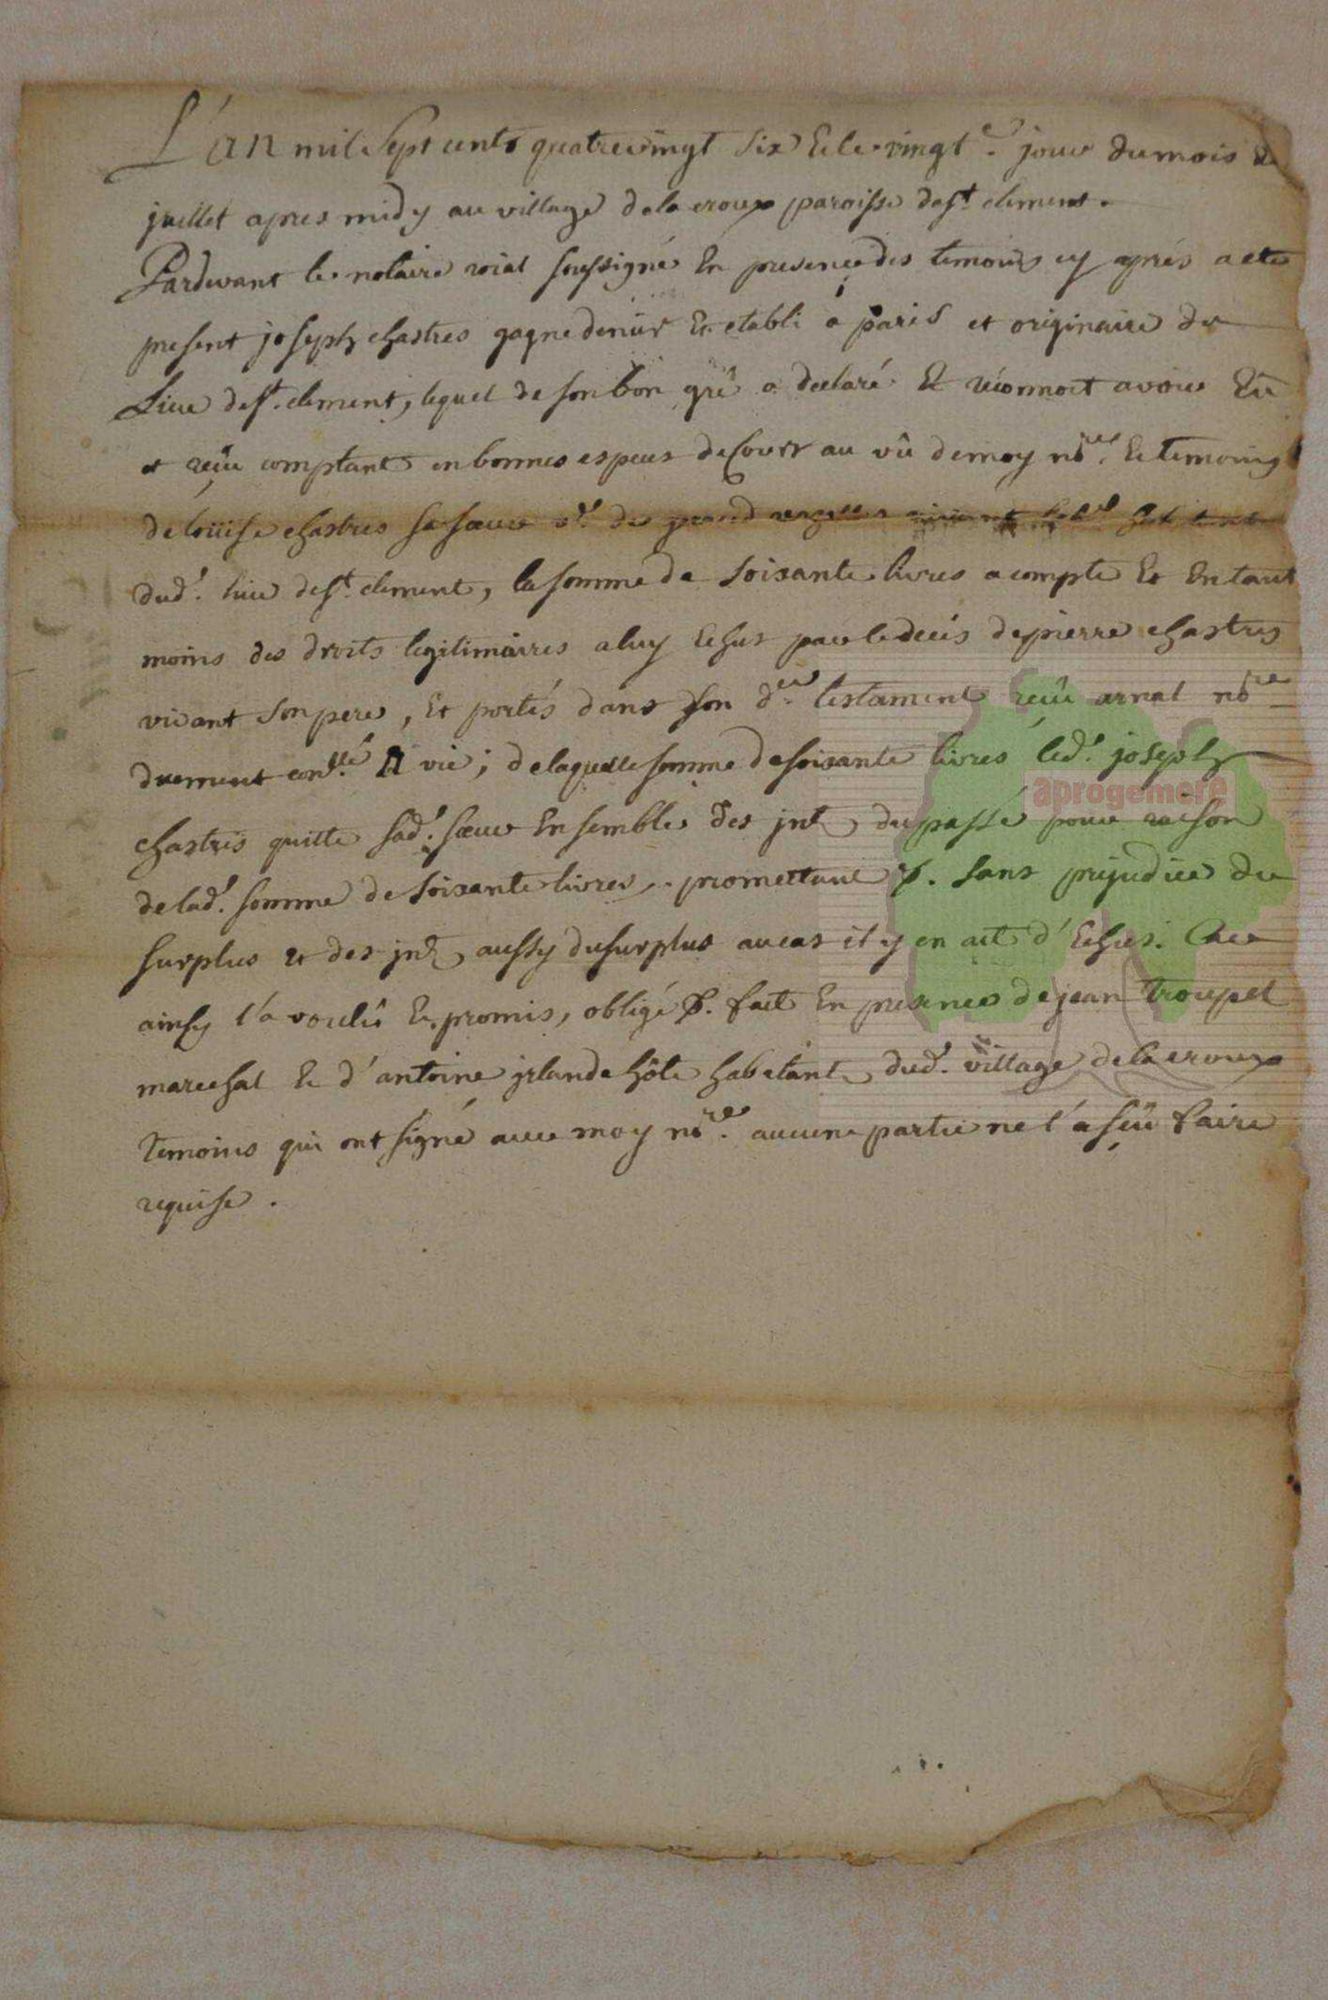 L'an mil sept cents quatre vingt six et le vingt.e jour du mois de
juillet apres midy au village de la croux paroisse de st clement.
Pardevant le notaire roial soussigné en presence des temoins cy aprés a eté
present joseph chastres gagne denier et etabli a paris et originaire du
Lieu de st. clement, lequel de son bon gré a declaré et réconnoit avoir Eû
et reçu comptant en bonnes especes de Cours au vû de moy nore. et temoins
de loüise chastres sa sœur ve. de
dud. lieu de st. clement, la somme de soixante livres a compte et en tant
moins des droits legitimaires a luy Echus par le decés de pierre chastres
vivant son pere, et portés dans son der. testament reçu arnal nore
duement conllé ; de laquelle somme de soixante livres led. joseph
chastres quitte sad. sœur ensemble des jnts du passé pour raison
de lad. somme de soixante livres, promettant &. sans prejudice du
surplus et des jnts aussy du surplus au cas il y en ait d'Echus.
ainsy l'a voulû et promis, obligé &. fait En presence de jean troupel
marechal et d'antoine jrlande hôte habitants dud. village de la croux
temoins qui ont signé avec moy nore. aucune partie ne l'a sçû faire
requise.
aprogemere